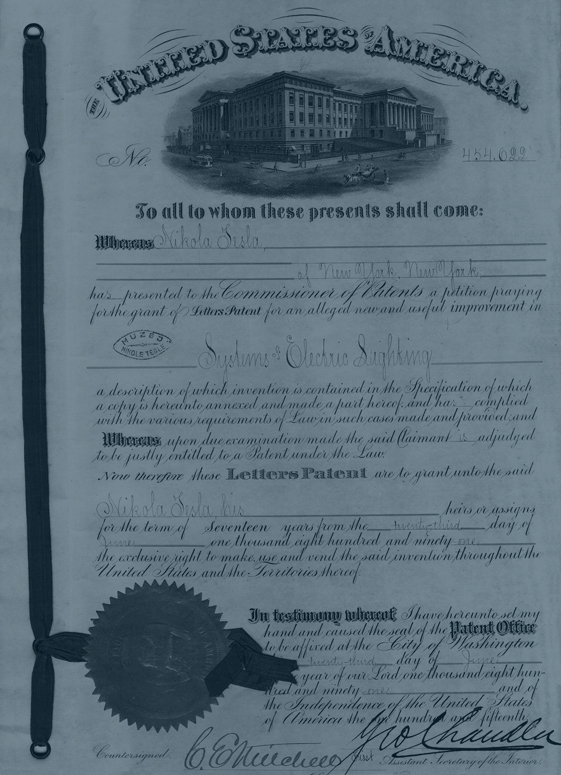 THE UNITED STATES OF AMERICA.
No. 454,622
To all to whom these presents shall come:
Whereas Nikola Tesla,
of New York, New York,
has presented to the Commissioner of Patents a petition praying
for the grant of Letters Patent for an alleged new and useful improvement in
MUZEJ
NIKOLE TESLE
Systems of Electric Lighting
a description of which invention is contained in the Specification of which
a copy is hereunto annexed and made a part hereof, and has complied
with the various requirements of Law in such cases made and provided, and
Whereas upon due examination made the said Claimant is adjudged
to be justly entitled to a Patent under the Law.
Now therefore these Letters Patent are to grant unto the said
Nikola Tesla, his
heirs or assigns
for the term of Seventeen years from the twenty-third day of
June, one thousand eight hundred and ninety-one,
the exclusive right to make, use and vend the said invention throughout the
United States and the Territories thereof.
In testimony whereof, I have hereunto set my
hand and caused the seal of the Patent Office
to be affixed at the City of Washington
twenty-third day of June,
year of our Lord one thousand eight hun-
dred and ninety-one, and of
the Independence of the United States
of America the one hundred and fifteenth.
Countersigned. C. E. Mitchell Geo Chandler
Assistant Secretary of the Interior.